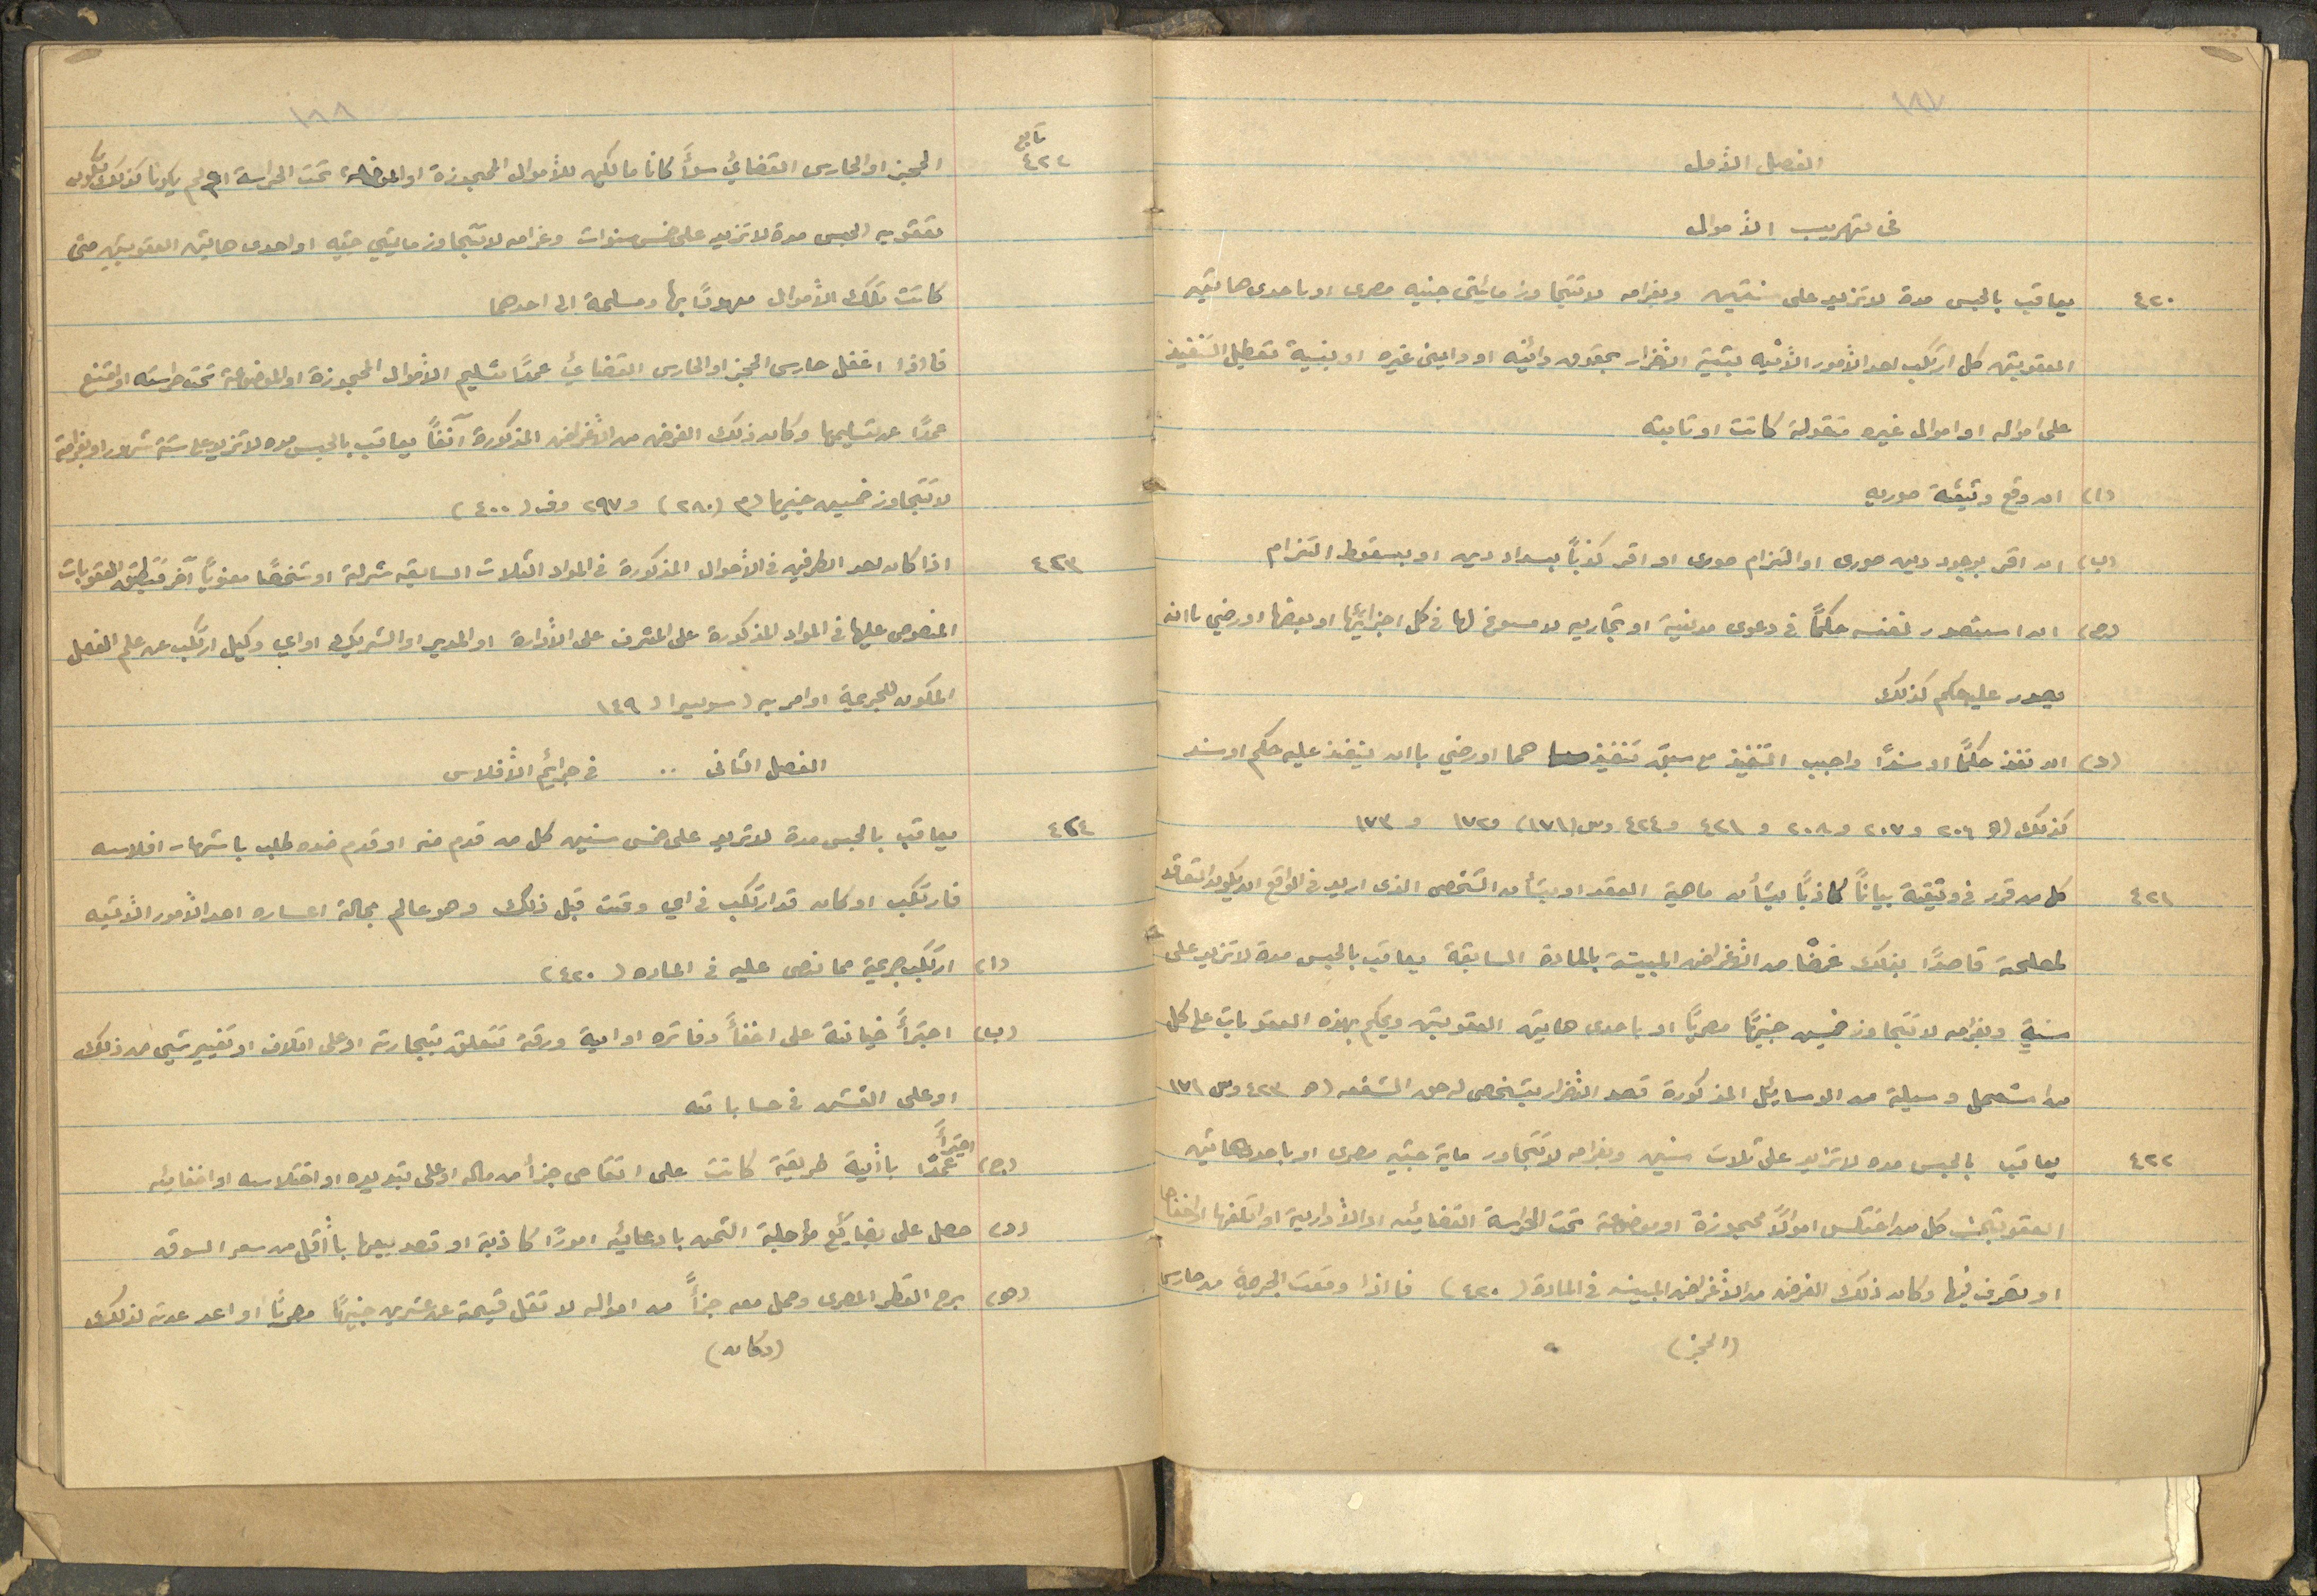 ١٨٧
الفصل الأول
في تهريب الأموال
٤٢٠ يعاقب بالحبس مدة لا تزيد على سنتين وبغرامه لا تتجاوز مائتى جنيه مصرى او باحدى هاتين
العقوبتين كل من ارتكب احد الأمور الأتيه بنية الأضرار بحقوق دائنيه او دائنى غيره او بنية تعطيل التنفيذ
على امواله او اموال غيره منقولة كانت او ثابته
(ا) ان وقع وثيقة صوريه
(ب) ان اقر بوجود دين صورى او التزام صورى او اقر كذباً بسداد دين او بسقوط التزام
(ج) ان استصدر لنفسه حكماً في دعوى مدنية او تجاريه لا مسوغ لها في كل اجزائها او بعضها او رضي باان
يصدر عليه حكم كذلك
(د) ان نفذ حكماً او سنداً واجب التنفيذ مع سبق تنفيذهما او رضي باان ينفذ عليه حكم او سند
كذلك (ه ٢٠٦ و ٢٠٧ و ٢٠٨ و ٤٢١ و ٤٢٤ وس (١٧١) و ١٧٢ و ١٧٣
٤٢١ كل من قرر في وثيقة بياناً كاذباً بشأن ماهية العقد او بشأن الشخص الذى اريد في الواقع ان يكون التعاقد
لمصلحته قاصداً بذلك غرضاً من الأغراض المبينة بالمادة السابقة يعاقب بالحبس مدة لا تزيد على
سنة وبغرامه لا تتجاوز خمسين جنيهاً مصرياً او باحدى هاتين العقوبتين ويحكم بهذه العقوبات على كل
من استعمل وسيلة من الوسائل المذكورة قصد الأضرار بشخص له حق الشفعه (ه ٤٢٣ وس ١٧١
٤٢٢ يعاقب بالحبس مده لا تزيد على ثلاث سنين وبغرامه لا تتجاوز ماية جنيه مصرى او باحدى هاتين
العقوبتين كل من اختلس اموالاً محجوزة او موضوعة تحت الحراسة القضائيه او الأدارية او اتلفها او اخفاها
او تصرف فيها وكان ذلك الغرض من الأغراض المبينه في المادة (٤٢٠) فاذا وقعت الجريمة من حارس
(الحجز)
١٨٨
تابع ٤٢٢ الحجز او الحارس القضائي سواً كانا مالكين للأموال المحجوزة او الموضوعة تحت الحراسة ام لم يكونا كذلك تكون
عقوبه الحبس مدة لا تزيد على خمس سنوات وغرامه لا تتجاوز مايتي جنيه او احدى هاتين العقوبتين متى
كانت تلك الأموال معهوداً بها ومسلمة الى احدهما
فاذا اغفل حارس الحجز او الحارس القضائي عمداً تسليم الأموال المحجوزة او الموضوعة تحت حراسته او امتنع
عمداً عن تسليمها وكان ذلك الغرض من الأغراض المذكورة آنفاً يعاقب بالحبس مده لا تزيد على ستة شهور او بغرامة
لا تتجاوز خمسين جنيها (م (٢٨٠) و ٢٩٧ وف (٤٠٠)
٤٢٣ اذا كان احد الطرفين في الأحوال المذكورة في المواد الثلاث السابقه شركة او شخصاً معنوياً آخر فتطبق العقوبات
المنصوص عليها في المواد المذكورة على المشرف على الأدارة او المدير او الشريك او اي وكيل ارتكب عن علم الفعل
المكون للجريمة او امر به (سويسرا (١٤٩
الفصل الثانى .. في جرائم الأفلاس
٤٢٤ يعاقب بالحبس مدة لا تزيد على خمس سنين كل من قدم منه او قدم ضده طلب باشهار افلاسه
فارتكب او كان قد ارتكب في اي وقت قبل ذلك وهو عالم بحالة اعساره احد الأمور الأتيه
(ا) ارتكب جريمة مما نص عليه في الماده (٤٢٠)
(ب) اجتراً خيانة على اخفاً دفاتره او اية ورقة تتعلق بتجارته او على اتلاف او تغيير شي من ذلك
او على الغش في حساباته
(ج) اجتراً عمداً باأية طريقة كانت على انقاص جزأ من ماله او على تبديده او اختلاسه او اخفائه
(د) حصل على بضائع مؤجلة الثمن بادعائه اموراً كاذبة او قصد بيعها باأقل من سعر السوق
(ه) برح القطر المصرى وحمل معه جزأً من امواله لا تقل قيمته عن عشرين جنيهاً مصرياً او اعد عدته لذلك
(وكان)